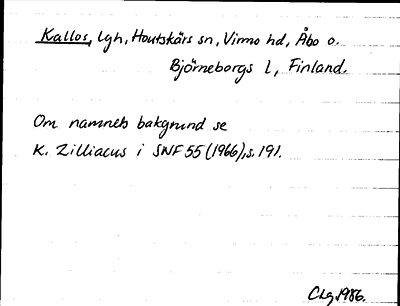 Kallos, lgh, Houtskärs sn, Virmo hd, Åbo o.
Björneborgs l, Finland.
Om namnets bakgrund se
K. Zilliacus i SNF 55 (1966), s. 191.
CLg 1986.